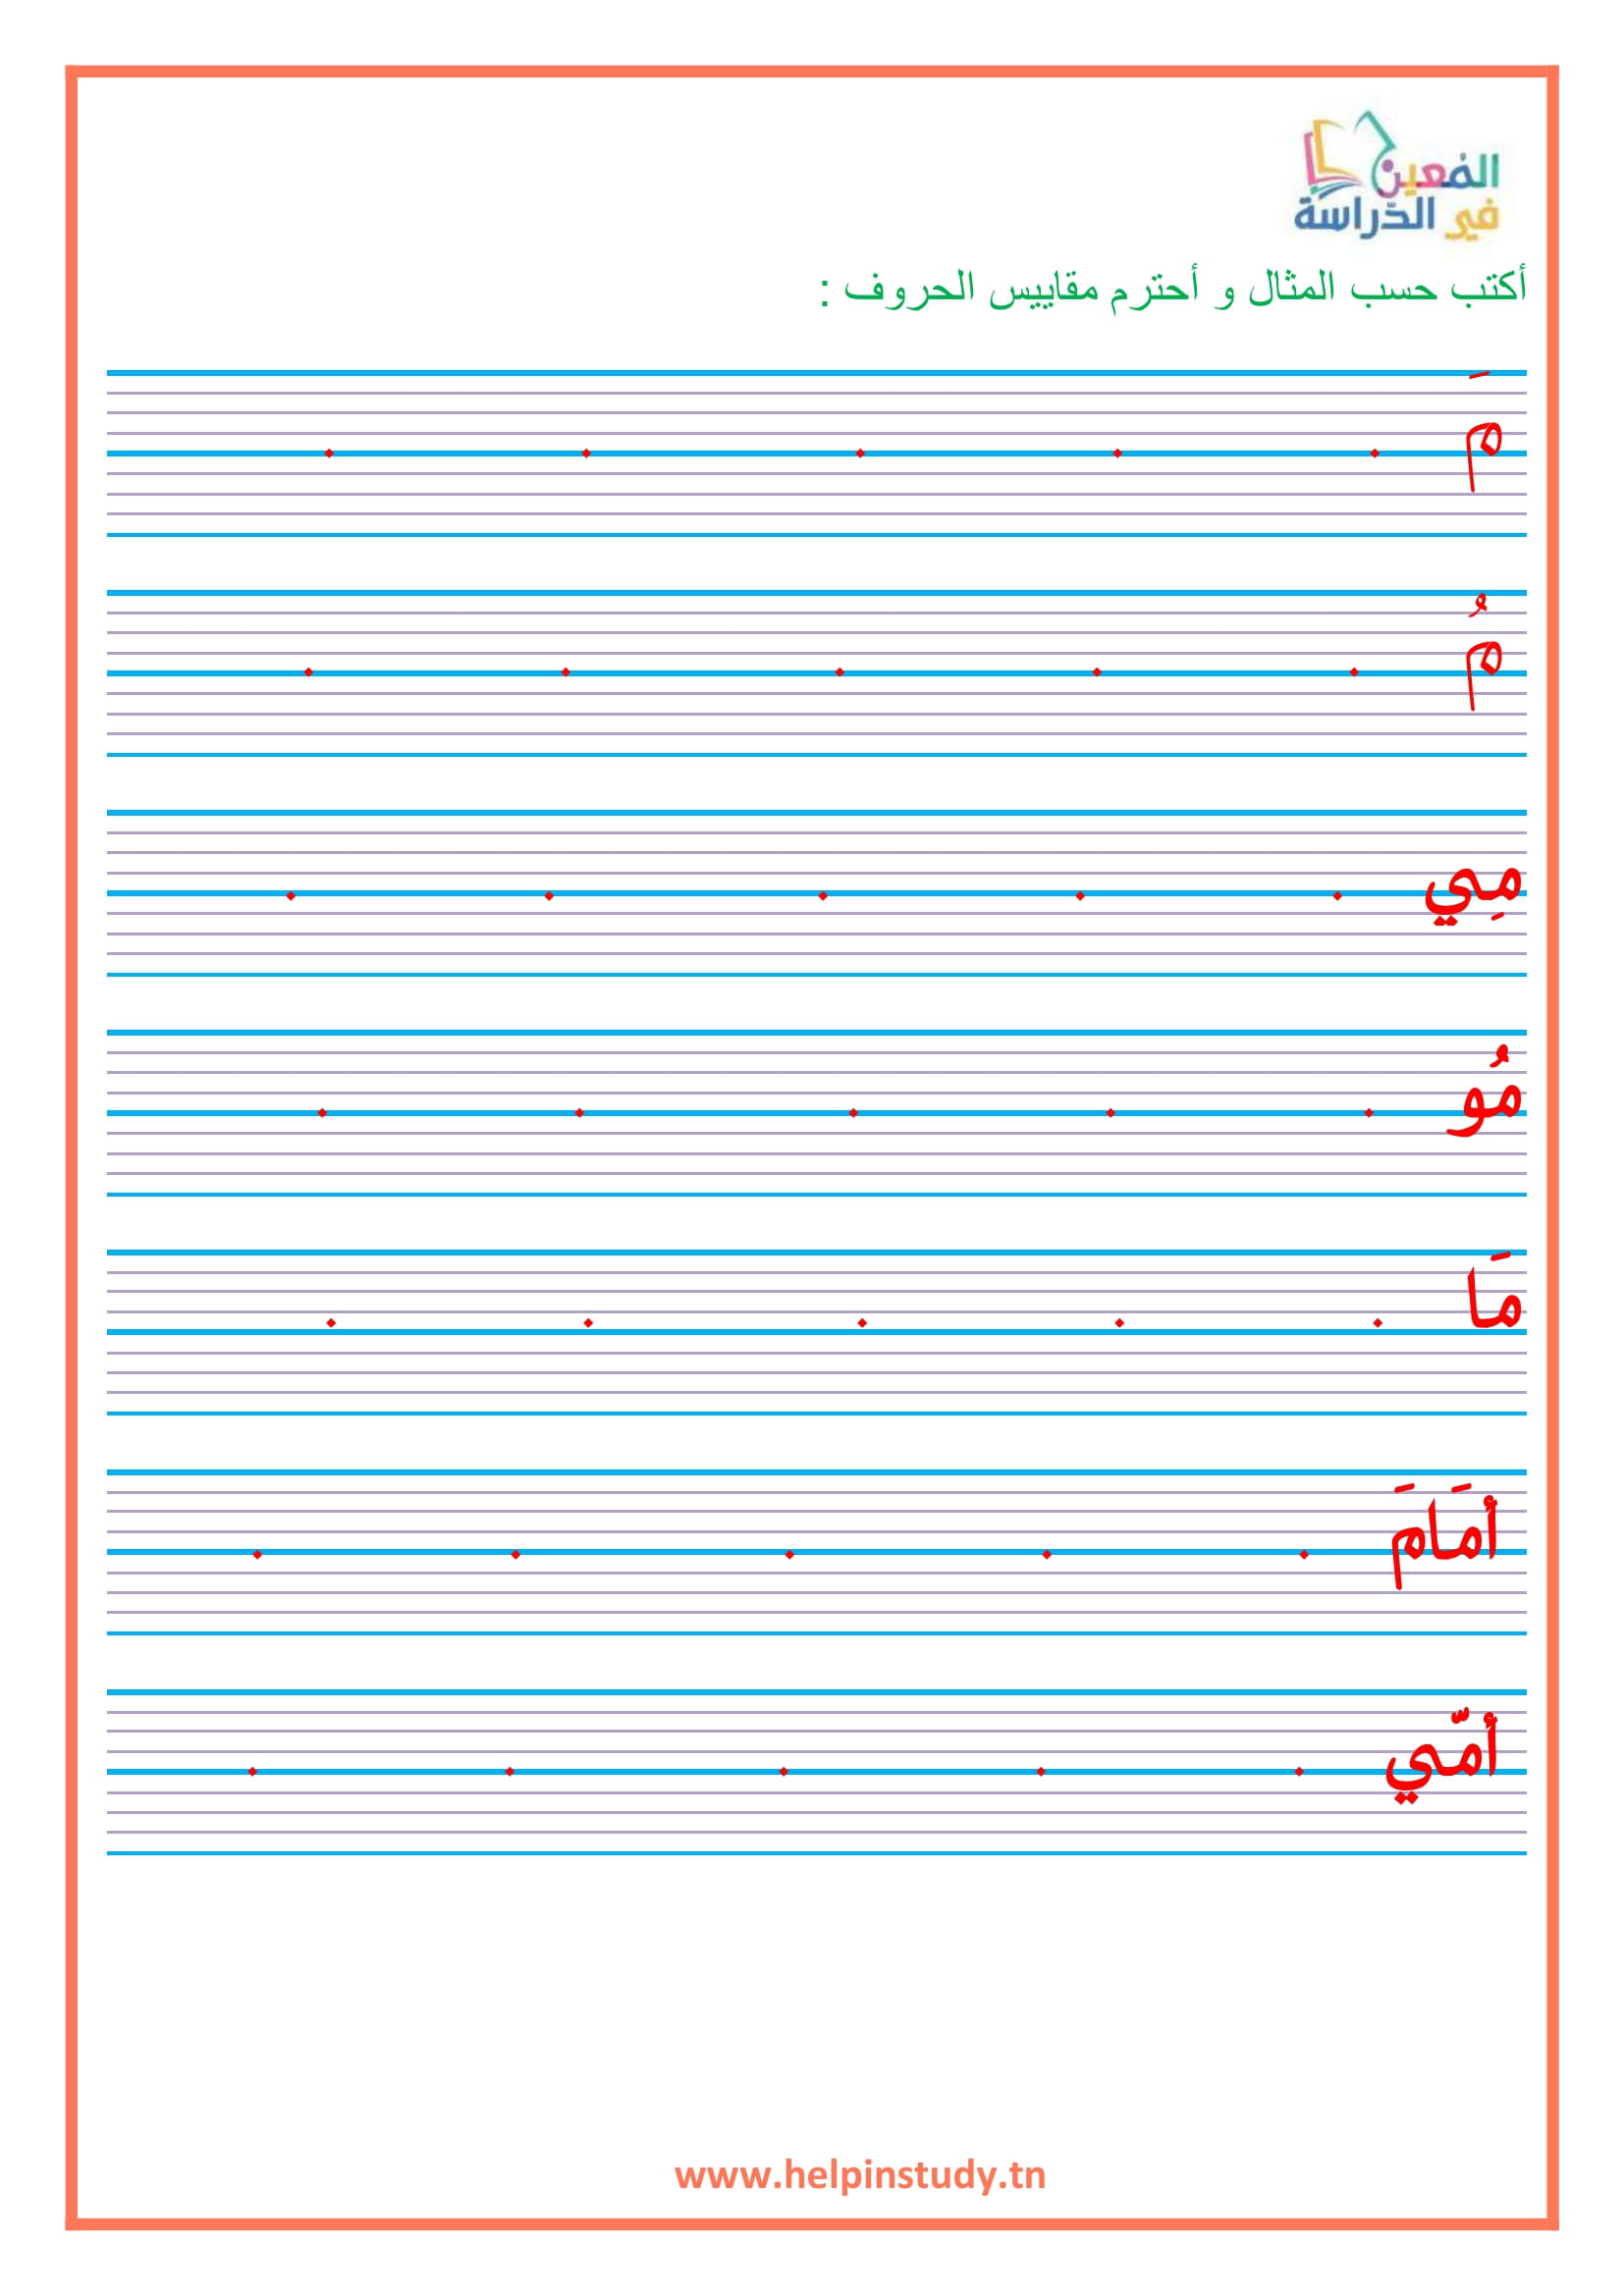 المُعين
في الدّراسة
أكتب حسب المثال و أحترم مقاييس الحروف :
مَ . . . . .
مُ . . . . .
مِي . . . . .
مُو . . . . .
مَا . . . . .
أمَامَ . . . . .
أمّي . . . . .
www.helpinstudy.tn